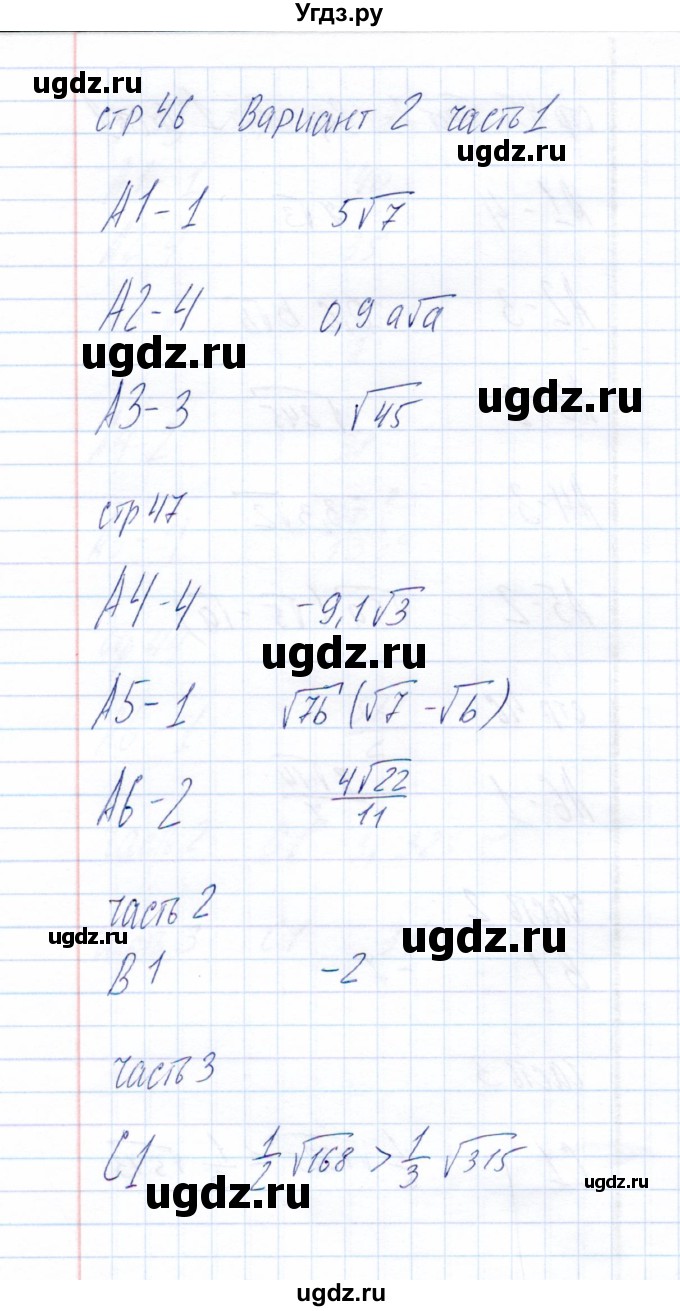 Угдз.ру
ugdz.ru
стр 46 Вариант 2 часть 1
ugdz.ru
А1-1 5√7
А2-4 0,9a√a
ugdz.ru
ugdz.ru
А3-3 √45
стр 47
А4-4 -9,1√3
ugdz.ru
А5-1 √7b (√7 - √b)
А6-2 4√22/11
часть 2
ugdz.ru
ugdz.ru
В1 -2
часть 3
С1 1/2 √168 > 1/3 √315
ugdz.ru
ugdz.ru
ugdz.ru